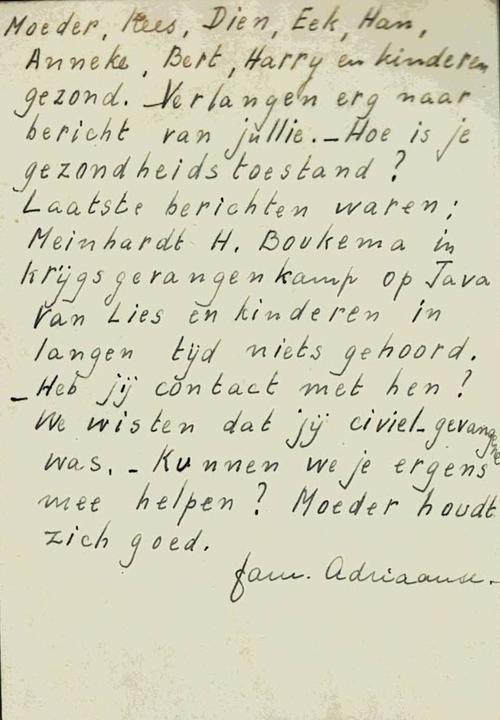 Moeder, Kees, Dien, Eek, Han,
Anneke, Bert, Harry en kinderen
gezond. Verlangen erg naar
bericht van jullie. – Hoe is je
gezondheidstoestand?
Laatste berichten waren;
Meinhardt H. Boukema in
krijgsgevangenkamp op Java
Van Lies en kinderen in
langen tijd niets gehoord.
– Heb jij contact met hen?
We wisten dat jij civiel-gevangene
was. – Kunnen we je ergens
mee helpen? Moeder houdt
zich goed.
fam. Adriaanse. –